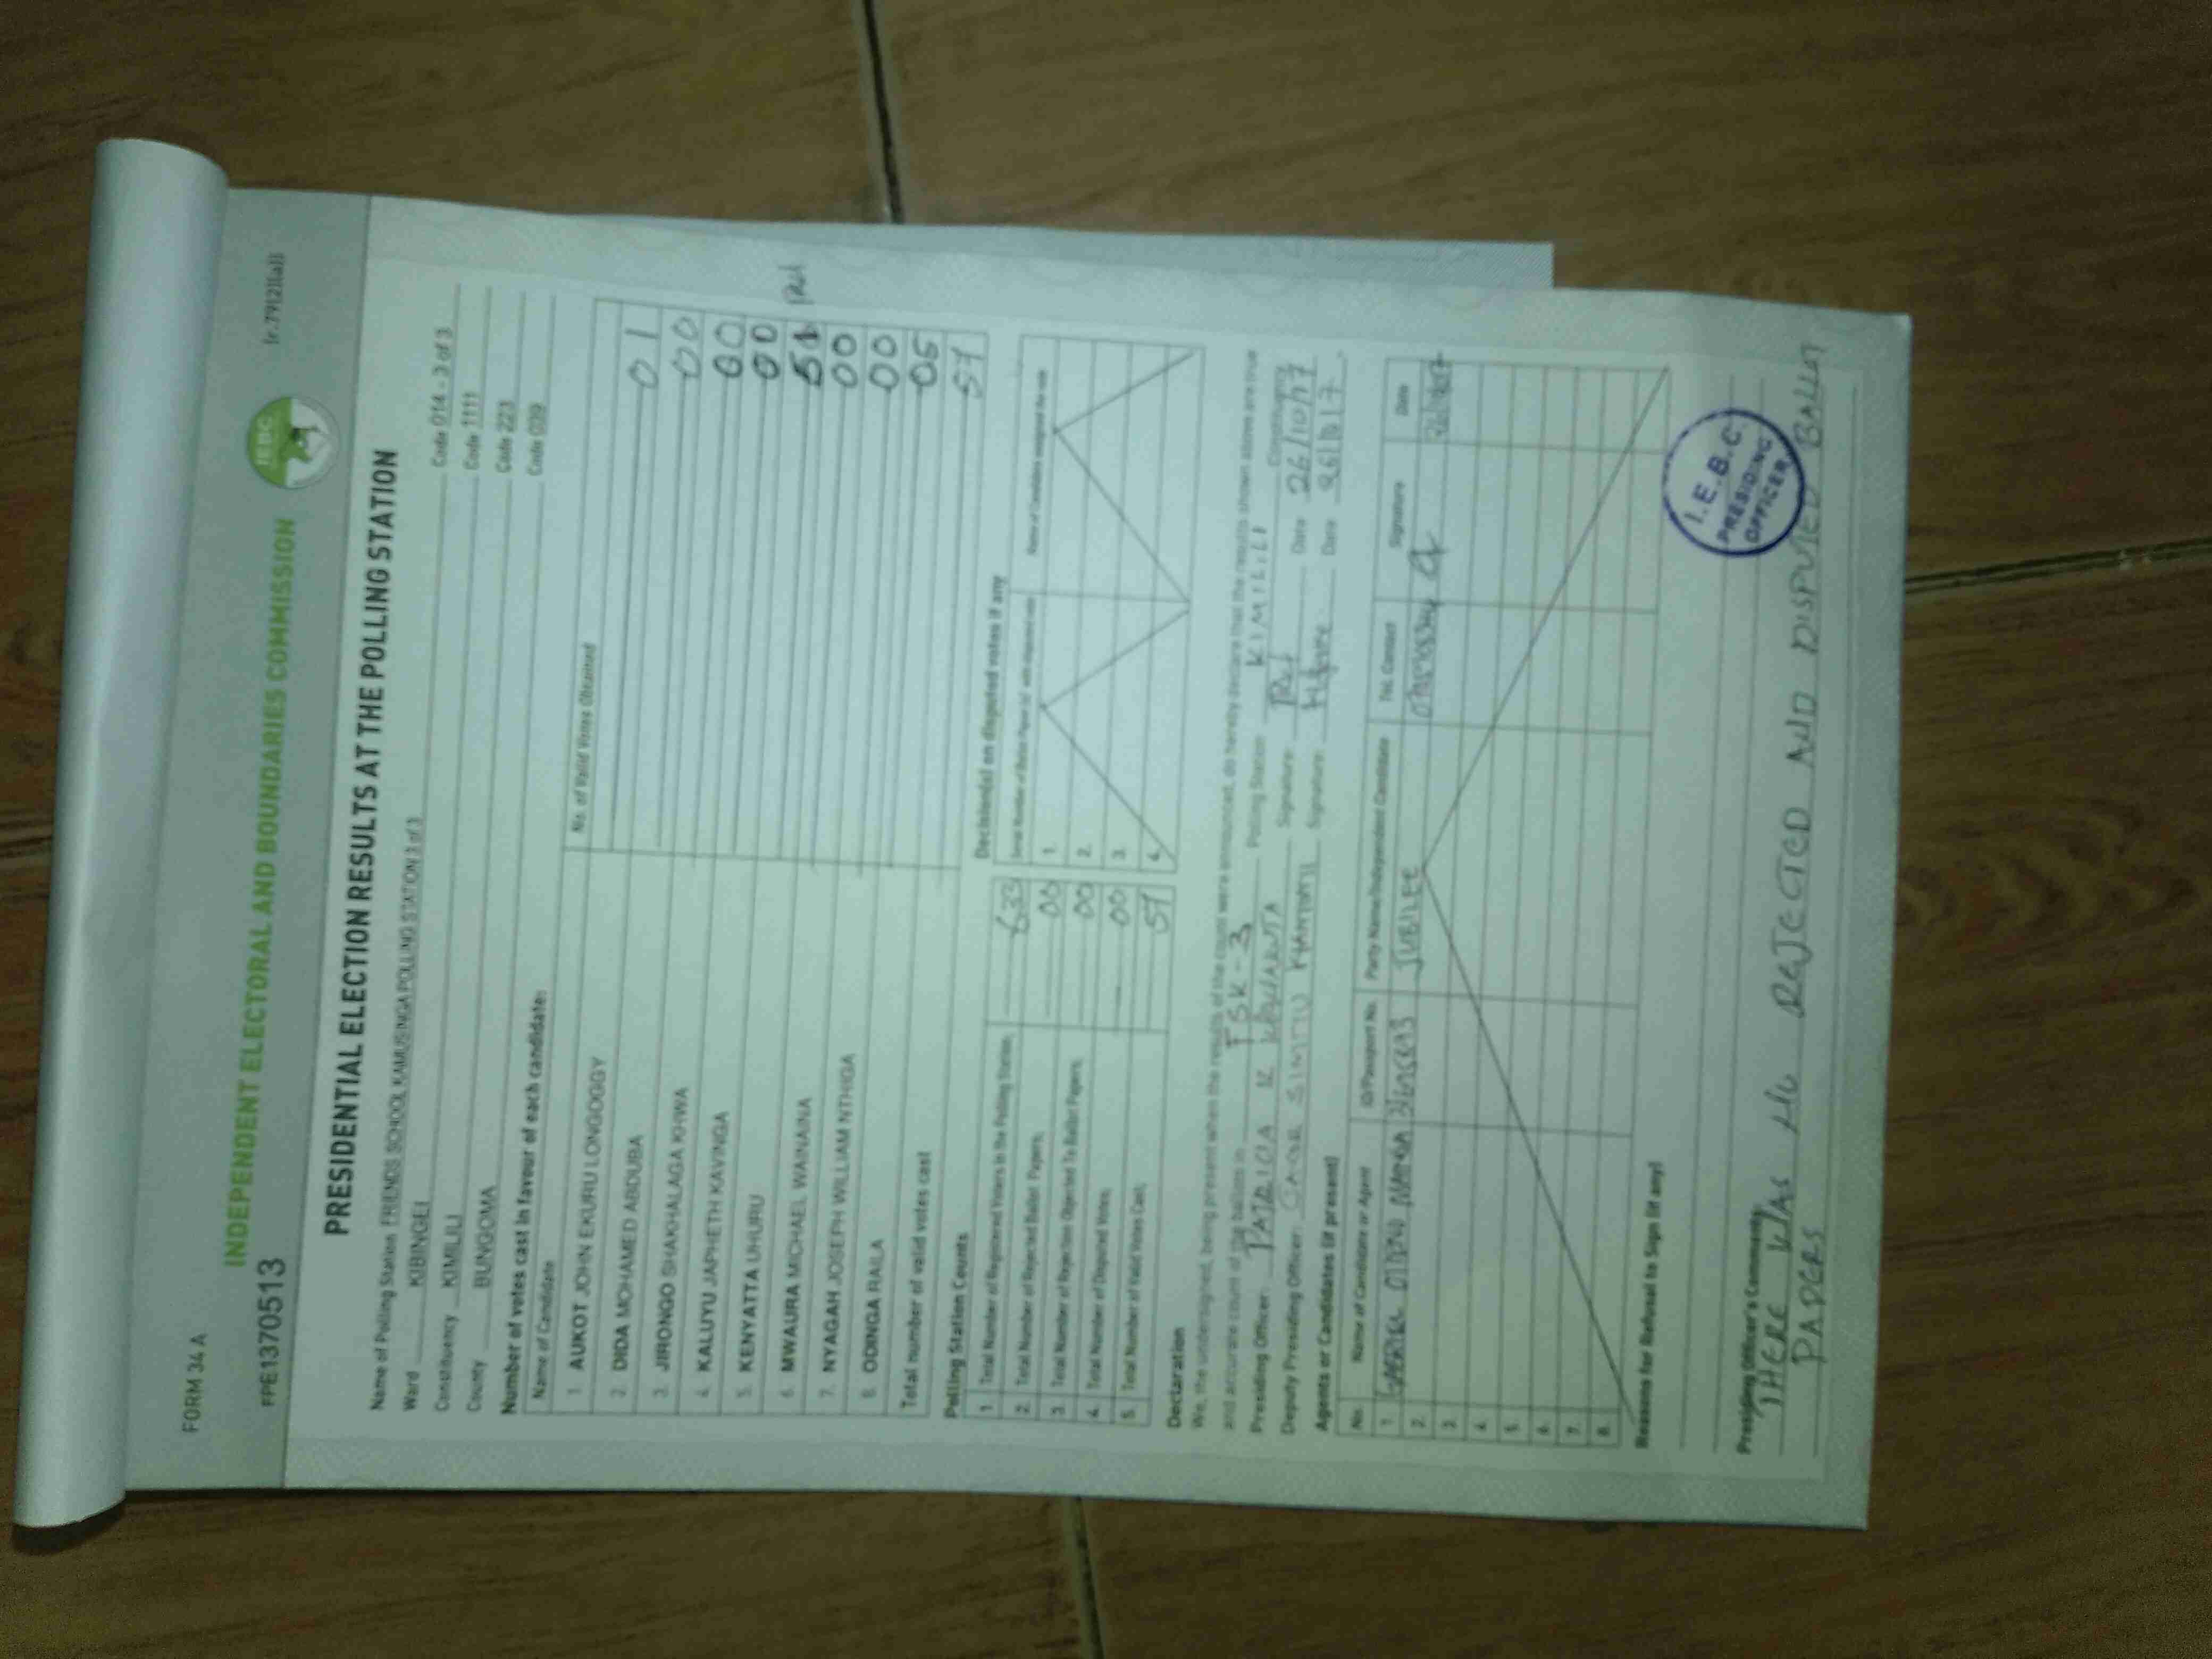 FORM 34 A
(r.79(2)(a))
INDEPENDENT ELECTORAL AND BOUNDARIES COMMISSION
IEBC
FPE1370513
PRESIDENTIAL ELECTION RESULTS AT THE POLLING STATION
Name of Polling Station FRIENDS SCHOOL KAMUSINGA POLLING STATION 3 of 3 Code 014 - 3 of 3
Ward KIBINGEI Code 1111
Constituency KIMILILI Code 223
County BUNGOMA Code 039
Number of votes cast in favour of each candidate:
Name of Candidate No. of Valid Votes Obtained
1. AUKOT JOHN EKURU LONGOGGY 01
2. DIDA MOHAMED ABDUBA 00
3. JIRONGO SHAKHALAGA KHWA 00
4. KALUYU JAPHETH KAVINGA 00
5. KENYATTA UHURU 51
6. MWAURA MICHAEL WAINAINA 00
7. NYAGAH JOSEPH WILLIAM NTHIGA 00
8. ODINGA RAILA 05
Total number of valid votes cast 57
Polling Station Counts
1. Total Number of Registered Voters in the Polling Station 633
2. Total Number of Rejected Ballot Papers 00
3. Total Number of Rejection Objected To Ballot Papers 00
4. Total Number of Disputed Votes 00
5. Total Number of Valid Votes Cast 57
Decision(s) on disputed votes if any
1.
2.
3.
4.
Declaration
We, the undersigned, being present when the results of the count were announced, do hereby declare that the results shown above are true
and accurate count of the ballots in FSK-3 Polling Station KIMILILI Constituency
Presiding Officer: Signature: Date 26/10/17
Deputy Presiding Officer: Signature: Date 26/10/17
Agents or Candidates (if present)
No. Name of Candidate or Agent ID/Passport No. Party Name/Independent Candidate Tel. Contact Signature Date
1. GABRIEL JUBILEE
2.
3.
4.
5.
6.
7.
8.
Reasons for Refusal to Sign (if any)
I.E.B.C.
PRESIDING
OFFICER
Presiding Officer's Comments
THERE WAS NO REJECTED AND DISPUTED BALLOT
PAPERS